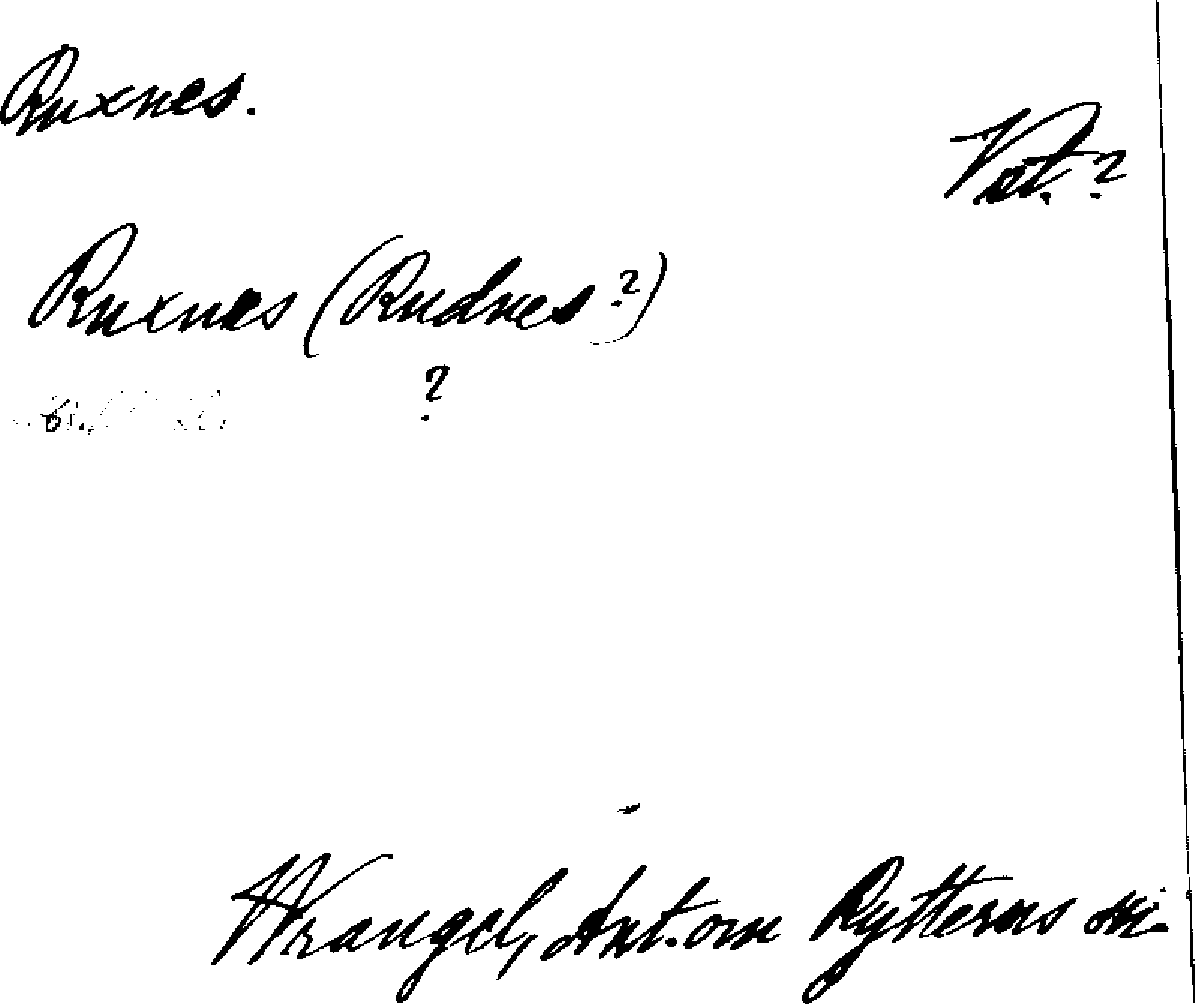 Ruxnes.
Vst.?
Ruxnes (Rudnes?)
?
Wrangel, Ant. om Rytterns